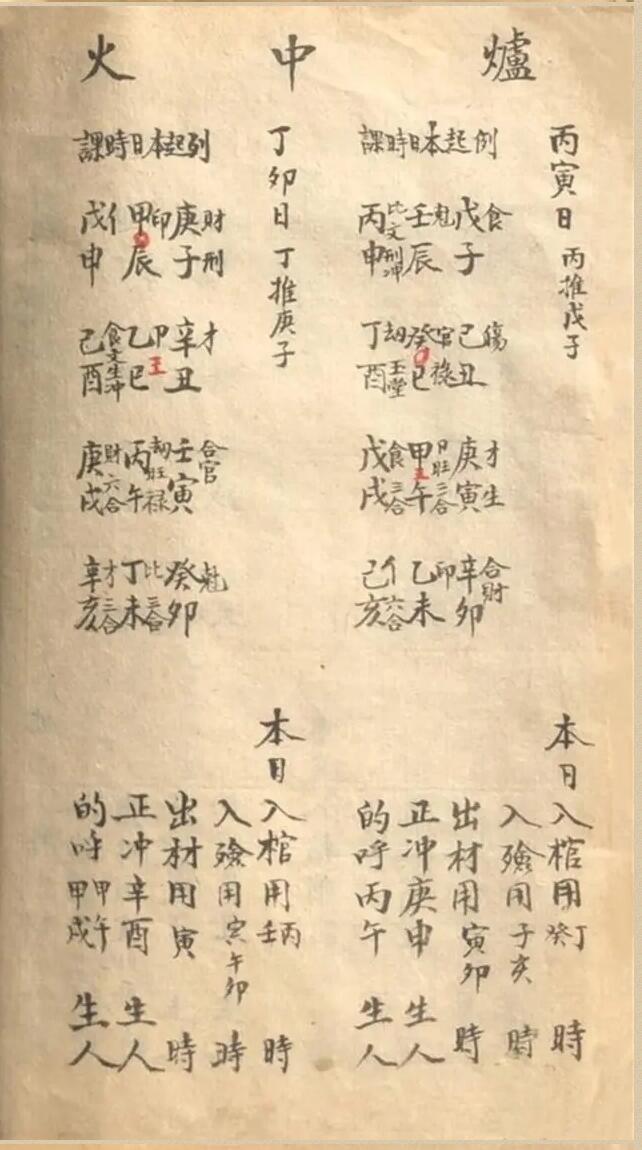 爐中火
丙寅日 丙推戊子
課時日本起例
戊子 食
己丑 傷
庚寅 才生
辛卯 合財
壬辰 魁
癸巳 官祿
甲午 日旺三合
乙未 印
丙申 比文刑冲
丁酉 劫玉堂
戊戌 食三合
己亥 亻六合
本日入棺用丁癸時
入殮用子亥時
出材用寅卯時
正冲庚申生人
的呼丙午生人
丁卯日 丁推庚子
課時日本起列
庚子 財刑
辛丑 才
壬寅 合官
癸卯 魁
甲辰 印
乙巳 卩 王
丙午 劫旺禄
丁未 比三合
戊申 亻
己酉 食文生冲
庚戌 財六合
辛亥 才三合
本日入棺用丙壬時
入殮用寅午卯時
出材用寅時
正冲辛酉生人
的呼甲午甲戌生人